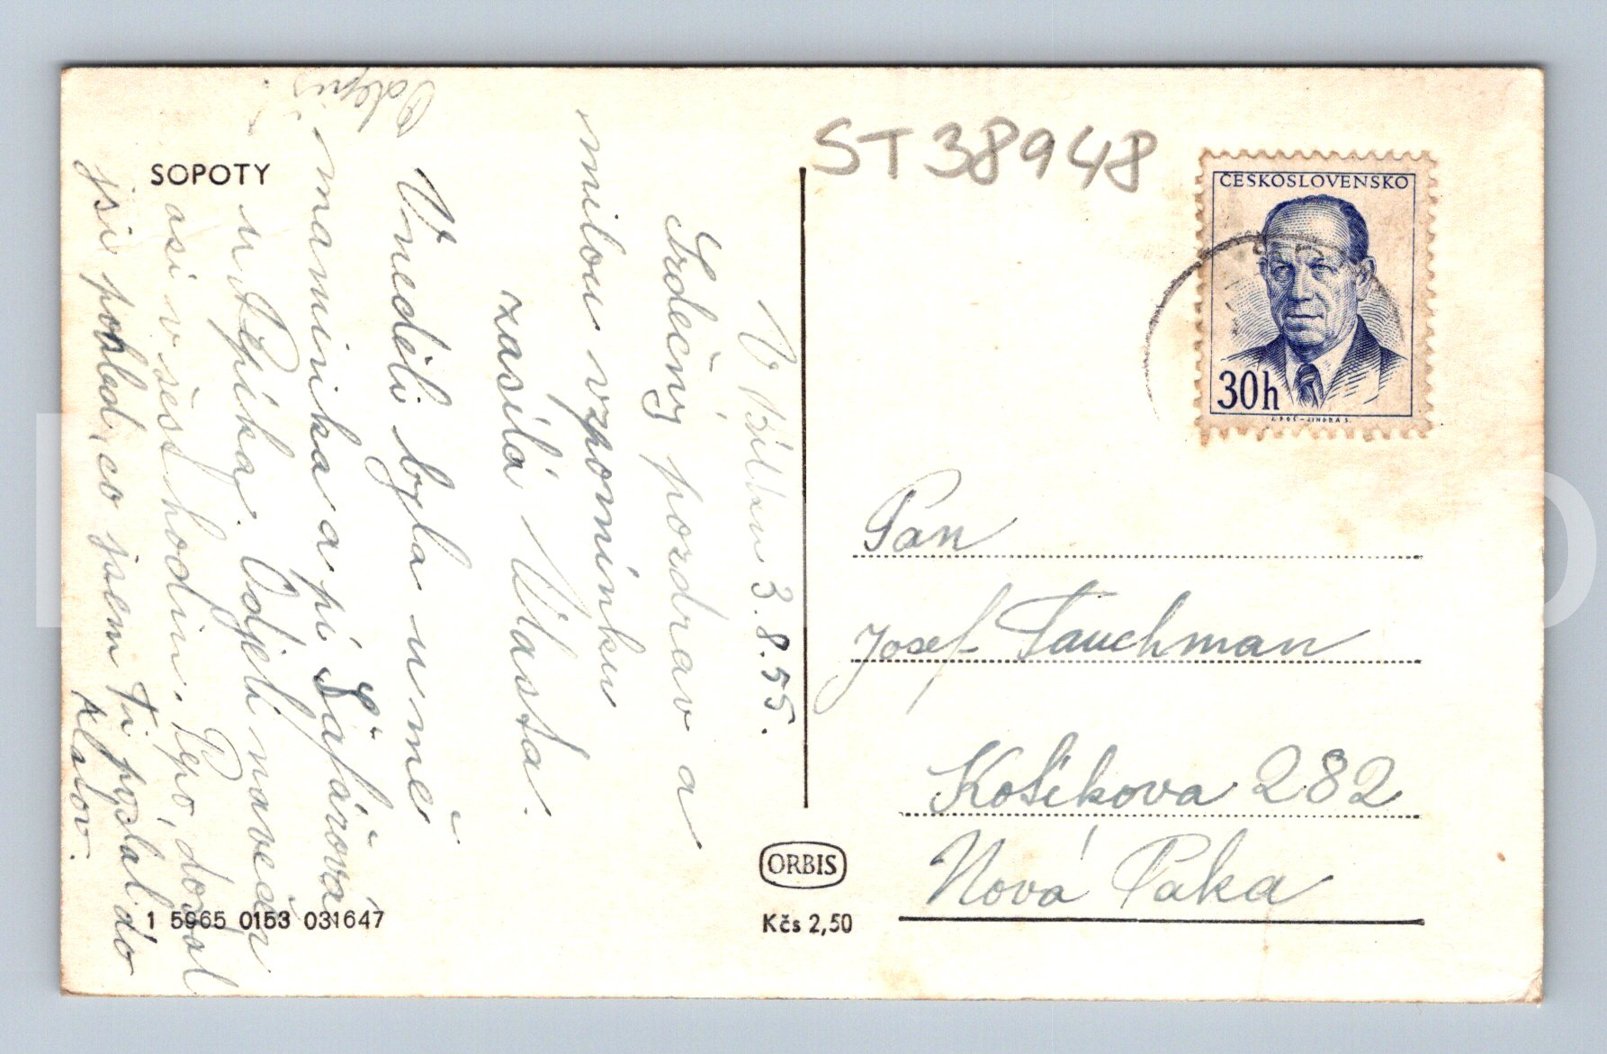 SOPOTY
ST38948
ČESKOSLOVENSKO
30h
V Bílku 3.8.55.
Srdečný pozdrav a
milou vzpomínku
zasílá Vlasta.
V neděli byla u mě
maminka a pí Šafářová
u Pipíka. Odjeli navečer
asi v šest hodin. Pepo, dostal
jsi pohled, co jsem Ti poslal do
Odepiš
Pan
Josef Tauchman
Košíkova 282
Nová Paka
ORBIS
Kčs 2,50
1 5965 0153 031647